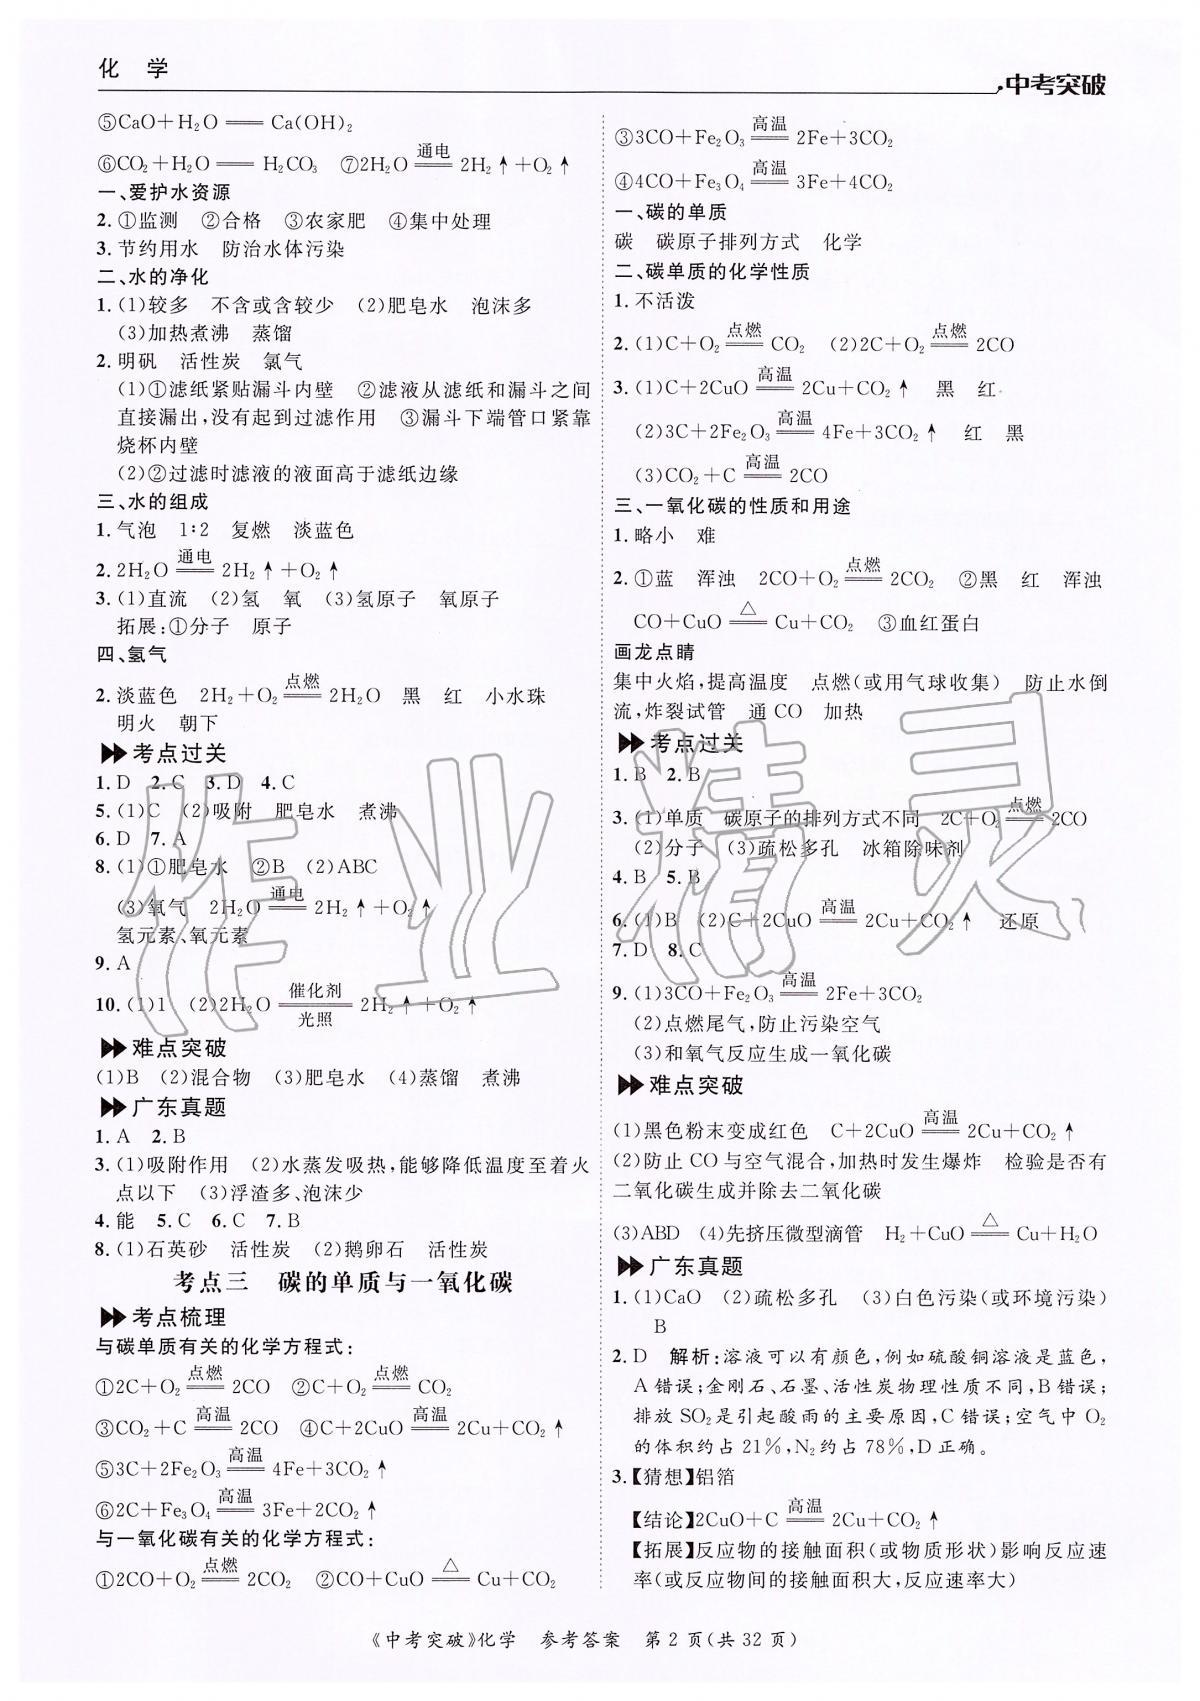 化　学
中考突破
⑤CaO+H₂O══Ca(OH)₂
⑥CO₂+H₂O══H₂CO₃　⑦2H₂O 通电══ 2H₂↑+O₂↑
一、爱护水资源
2. ①监测　②合格　③农家肥　④集中处理
3. 节约用水　防治水体污染
二、水的净化
1. (1)较多　不含或含较少　(2)肥皂水　泡沫多
(3)加热煮沸　蒸馏
2. 明矾　活性炭　氯气
(1)①滤纸紧贴漏斗内壁　②滤液从滤纸和漏斗之间
直接漏出,没有起到过滤作用　③漏斗下端管口紧靠
烧杯内壁
(2)②过滤时滤液的液面高于滤纸边缘
三、水的组成
1. 气泡　1∶2　复燃　淡蓝色
2. 2H₂O 通电══ 2H₂↑+O₂↑
3. (1)直流　(2)氢　氧　(3)氢原子　氧原子
拓展:①分子　原子
四、氢气
2. 淡蓝色　2H₂+O₂ 点燃══ 2H₂O　黑　红　小水珠
明火　朝下
考点过关
1. D　2. C　3. D　4. C
5. (1)C　(2)吸附　肥皂水　煮沸
6. D　7. A
8. (1)①肥皂水　②B　(2)ABC
(3)氧气　2H₂O 通电══ 2H₂↑+O₂↑
氢元素、氧元素
9. A
10. (1)1　(2)2H₂O 催化剂══光照 2H₂↑+O₂↑
难点突破
(1)B　(2)混合物　(3)肥皂水　(4)蒸馏　煮沸
广东真题
1. A　2. B
3. (1)吸附作用　(2)水蒸发吸热,能够降低温度至着火
点以下　(3)浮渣多、泡沫少
4. 能　5. C　6. C　7. B
8. (1)石英砂　活性炭　(2)鹅卵石　活性炭
考点三　碳的单质与一氧化碳
考点梳理
与碳单质有关的化学方程式:
①2C+O₂ 点燃══ 2CO　②C+O₂ 点燃══ CO₂
③CO₂+C 高温══ 2CO　④C+2CuO 高温══ 2Cu+CO₂↑
⑤3C+2Fe₂O₃ 高温══ 4Fe+3CO₂↑
⑥2C+Fe₃O₄ 高温══ 3Fe+2CO₂↑
与一氧化碳有关的化学方程式:
①2CO+O₂ 点燃══ 2CO₂　②CO+CuO △══ Cu+CO₂
③3CO+Fe₂O₃ 高温══ 2Fe+3CO₂
④4CO+Fe₃O₄ 高温══ 3Fe+4CO₂
一、碳的单质
碳　碳原子排列方式　化学
二、碳单质的化学性质
1. 不活泼
2. (1)C+O₂ 点燃══ CO₂　(2)2C+O₂ 点燃══ 2CO
3. (1)C+2CuO 高温══ 2Cu+CO₂↑　黑　红
(2)3C+2Fe₂O₃ 高温══ 4Fe+3CO₂↑　红　黑
(3)CO₂+C 高温══ 2CO
三、一氧化碳的性质和用途
1. 略小　难
2. ①蓝　浑浊　2CO+O₂ 点燃══ 2CO₂　②黑　红　浑浊
CO+CuO △══ Cu+CO₂　③血红蛋白
画龙点睛
集中火焰,提高温度　点燃(或用气球收集)　防止水倒
流,炸裂试管　通CO　加热
考点过关
1. B　2. B
3. (1)单质　碳原子的排列方式不同　2C+O₂ 点燃══ 2CO
(2)分子　(3)疏松多孔　冰箱除味剂
4. B　5. B
6. (1)B　(2)C+2CuO 高温══ 2Cu+CO₂↑　还原
7. D　8. C
9. (1)3CO+Fe₂O₃ 高温══ 2Fe+3CO₂
(2)点燃尾气,防止污染空气
(3)和氧气反应生成一氧化碳
难点突破
(1)黑色粉末变成红色　C+2CuO 高温══ 2Cu+CO₂↑
(2)防止CO与空气混合,加热时发生爆炸　检验是否有
二氧化碳生成并除去二氧化碳
(3)ABD　(4)先挤压微型滴管　H₂+CuO △══ Cu+H₂O
广东真题
1. (1)CaO　(2)疏松多孔　(3)白色污染(或环境污染)
B
2. D　解析:溶液可以有颜色,例如硫酸铜溶液是蓝色,
A错误;金刚石、石墨、活性炭物理性质不同,B错误;
排放SO₂是引起酸雨的主要原因,C错误;空气中O₂
的体积约占21%,N₂约占78%,D正确。
3.【猜想】铝箔
【结论】2CuO+C 高温══ 2Cu+CO₂↑
【拓展】反应物的接触面积(或物质形状)影响反应速
率(或反应物间的接触面积大,反应速率大)
《中考突破》化学　参考答案　第2页(共32页)
作业精灵